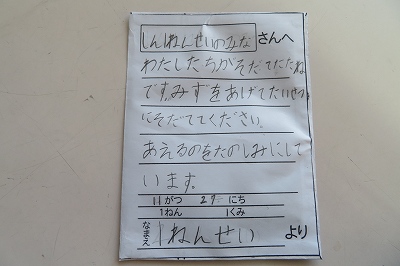 しんねんせいのみなさんへ
わたしたちがそだてたたね
です。みずをあげてたいせつ
にそだててください。
あえるのをたのしみにして
います。
11がつ 27にち
1ねん 1くみ
なまえ 1ねんせい より